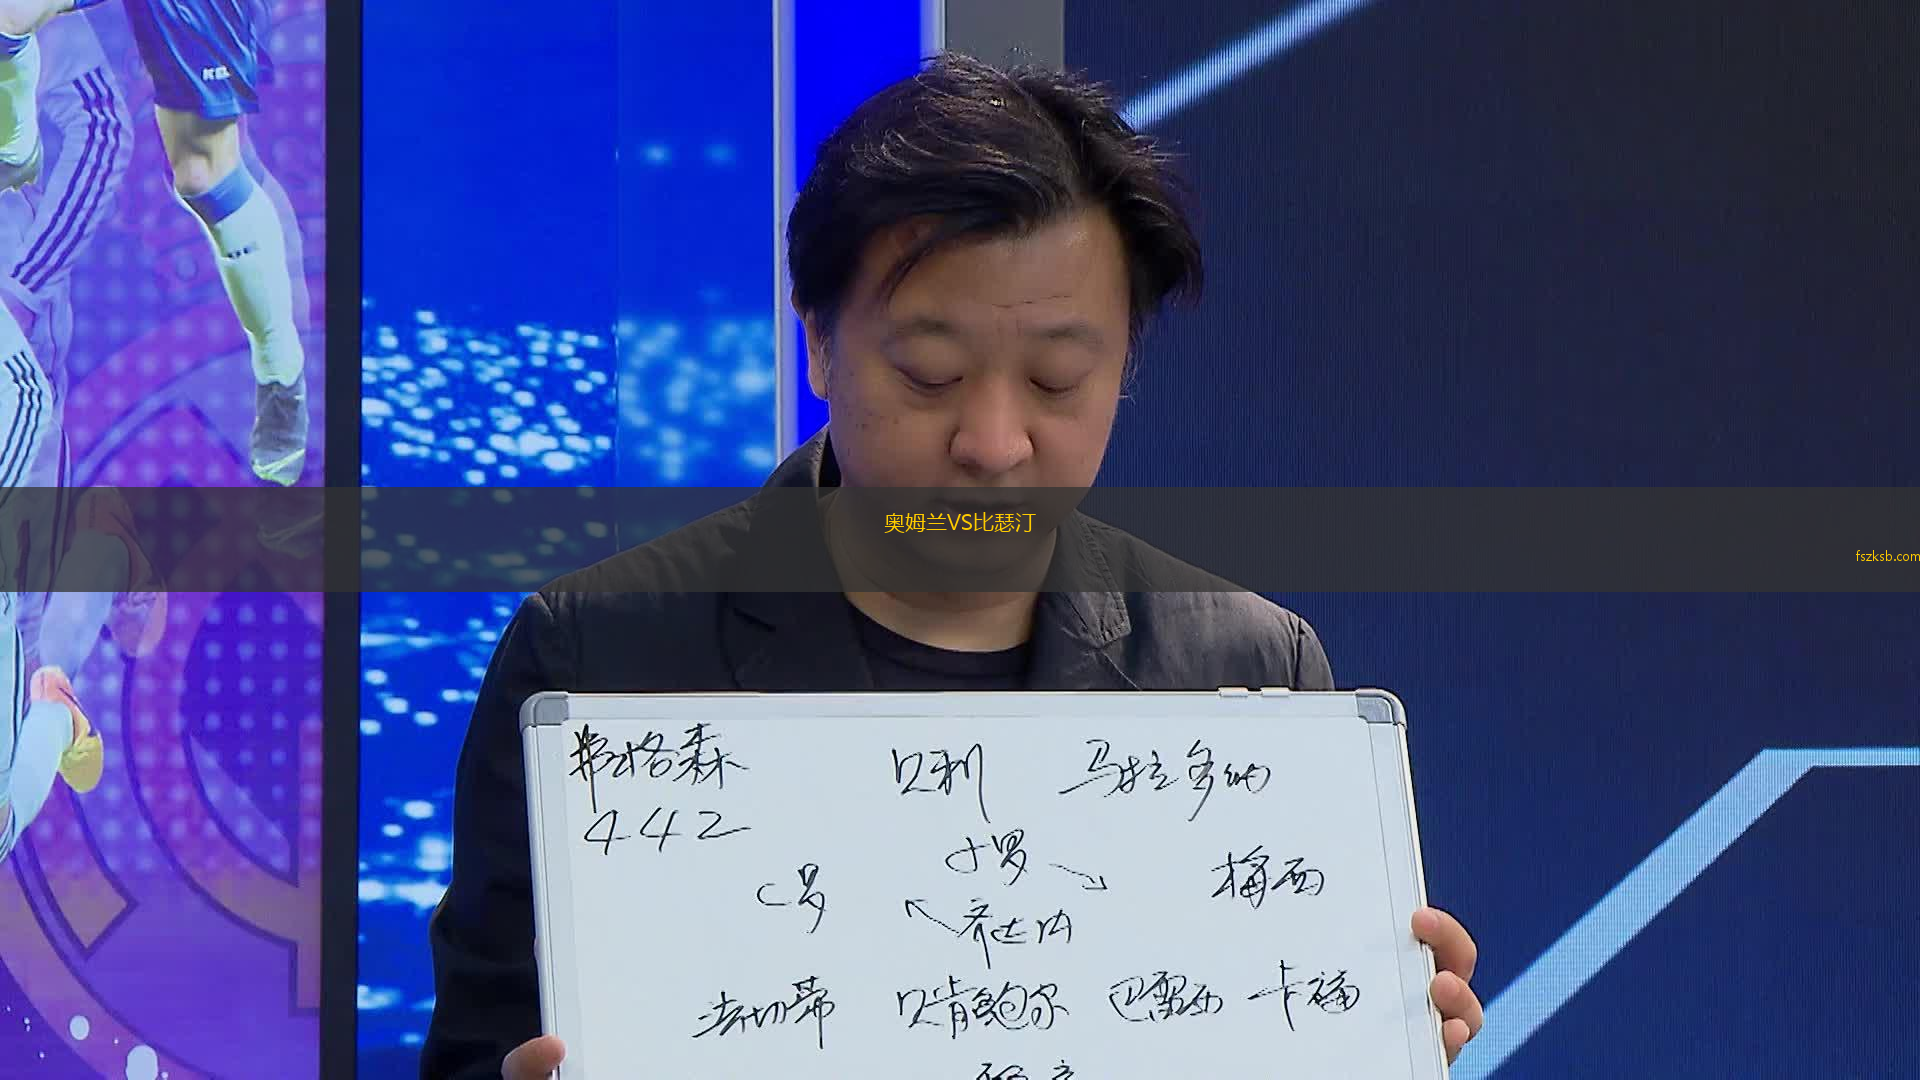 奥姆兰VS比瑟汀
fszksb.com
弗格森 贝利 马拉多纳
442
小罗
C罗 梅西
齐达内
法切蒂 贝肯鲍尔 巴雷西 卡福